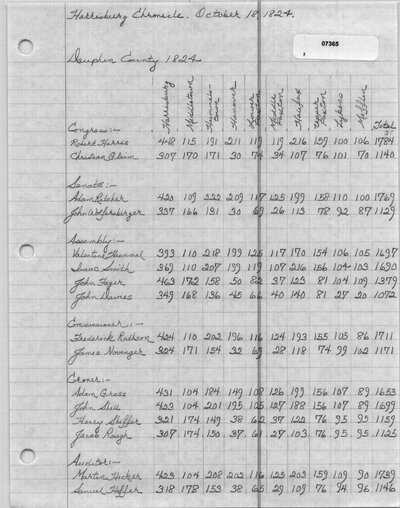 Harrisburg Chronicle. October 18, 1824.
07365
Dauphin County 1824
Harrisburg Middletown Hummels-town Hanover Lower Paxton Middle Paxton Halifax Upper Paxton Lykens Mifflin Total
Congress:-
Robert Harris 448 115 191 211 119 119 216 159 100 106 1784
Christian Gleim 307 170 171 30 74 34 107 76 101 70 1140
Senate:-
Adam Kelcher 420 109 222 209 117 125 199 158 110 100 1769
John Wolfersberger 337 166 131 30 69 26 113 78 92 87 1129
Assembly:-
Valentine Hummel 393 110 218 199 125 117 170 154 106 105 1697
Isaac Smith 369 110 207 199 119 107 216 156 104 103 1690
John Fager 463 172 158 50 82 37 123 81 104 109 1379
John Davies 349 168 136 45 66 40 140 81 27 20 1072
Commissioner:-
Frederick Rathvon 424 110 202 196 116 124 193 155 105 86 1711
James Novenger 324 171 154 32 69 28 118 74 99 102 1171
Coroner:-
Adam Gross 431 104 184 149 108 126 199 156 107 89 1653
John Shell 423 104 201 195 125 127 188 156 107 89 1699
Henry Sheffer 321 174 149 38 62 37 122 76 95 95 1159
Jacob Rough 307 174 150 37 61 27 103 76 95 95 1125
Auditor:-
Martin Hocker 423 104 208 202 116 125 203 159 109 90 1739
Samuel Hoffer 318 178 153 38 65 29 109 76 94 96 1146